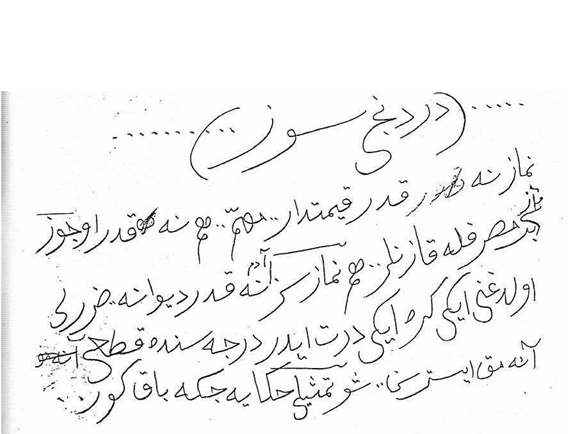 (دردنجی سوز)
نماز نه قدر قیمتدار.. مهمّ.. هم نه قدر اوجوز
بر مصرفله قازنلر.. هم نمازسز آدم نه قدر دیوانه.. ضررلی
اولدغنی ایکی کره ایکی درت ایدر درجه‌سنده قطعی
آڭلامق ایسترسڭ.. شو تمثیلی حکایه‌جکه باق کور...